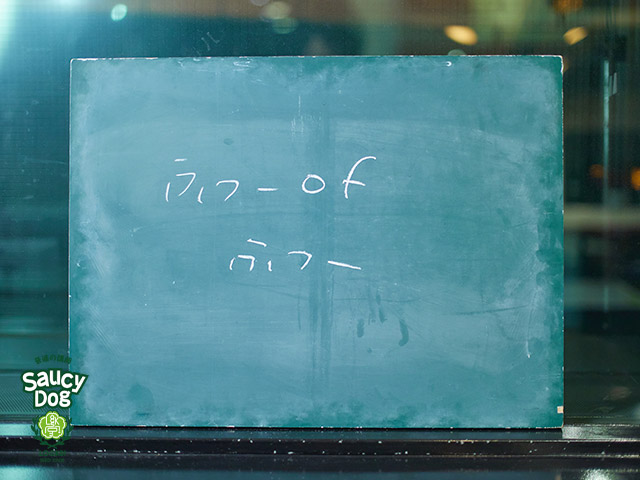 ウワー of
ウワー
Saucy
Dog